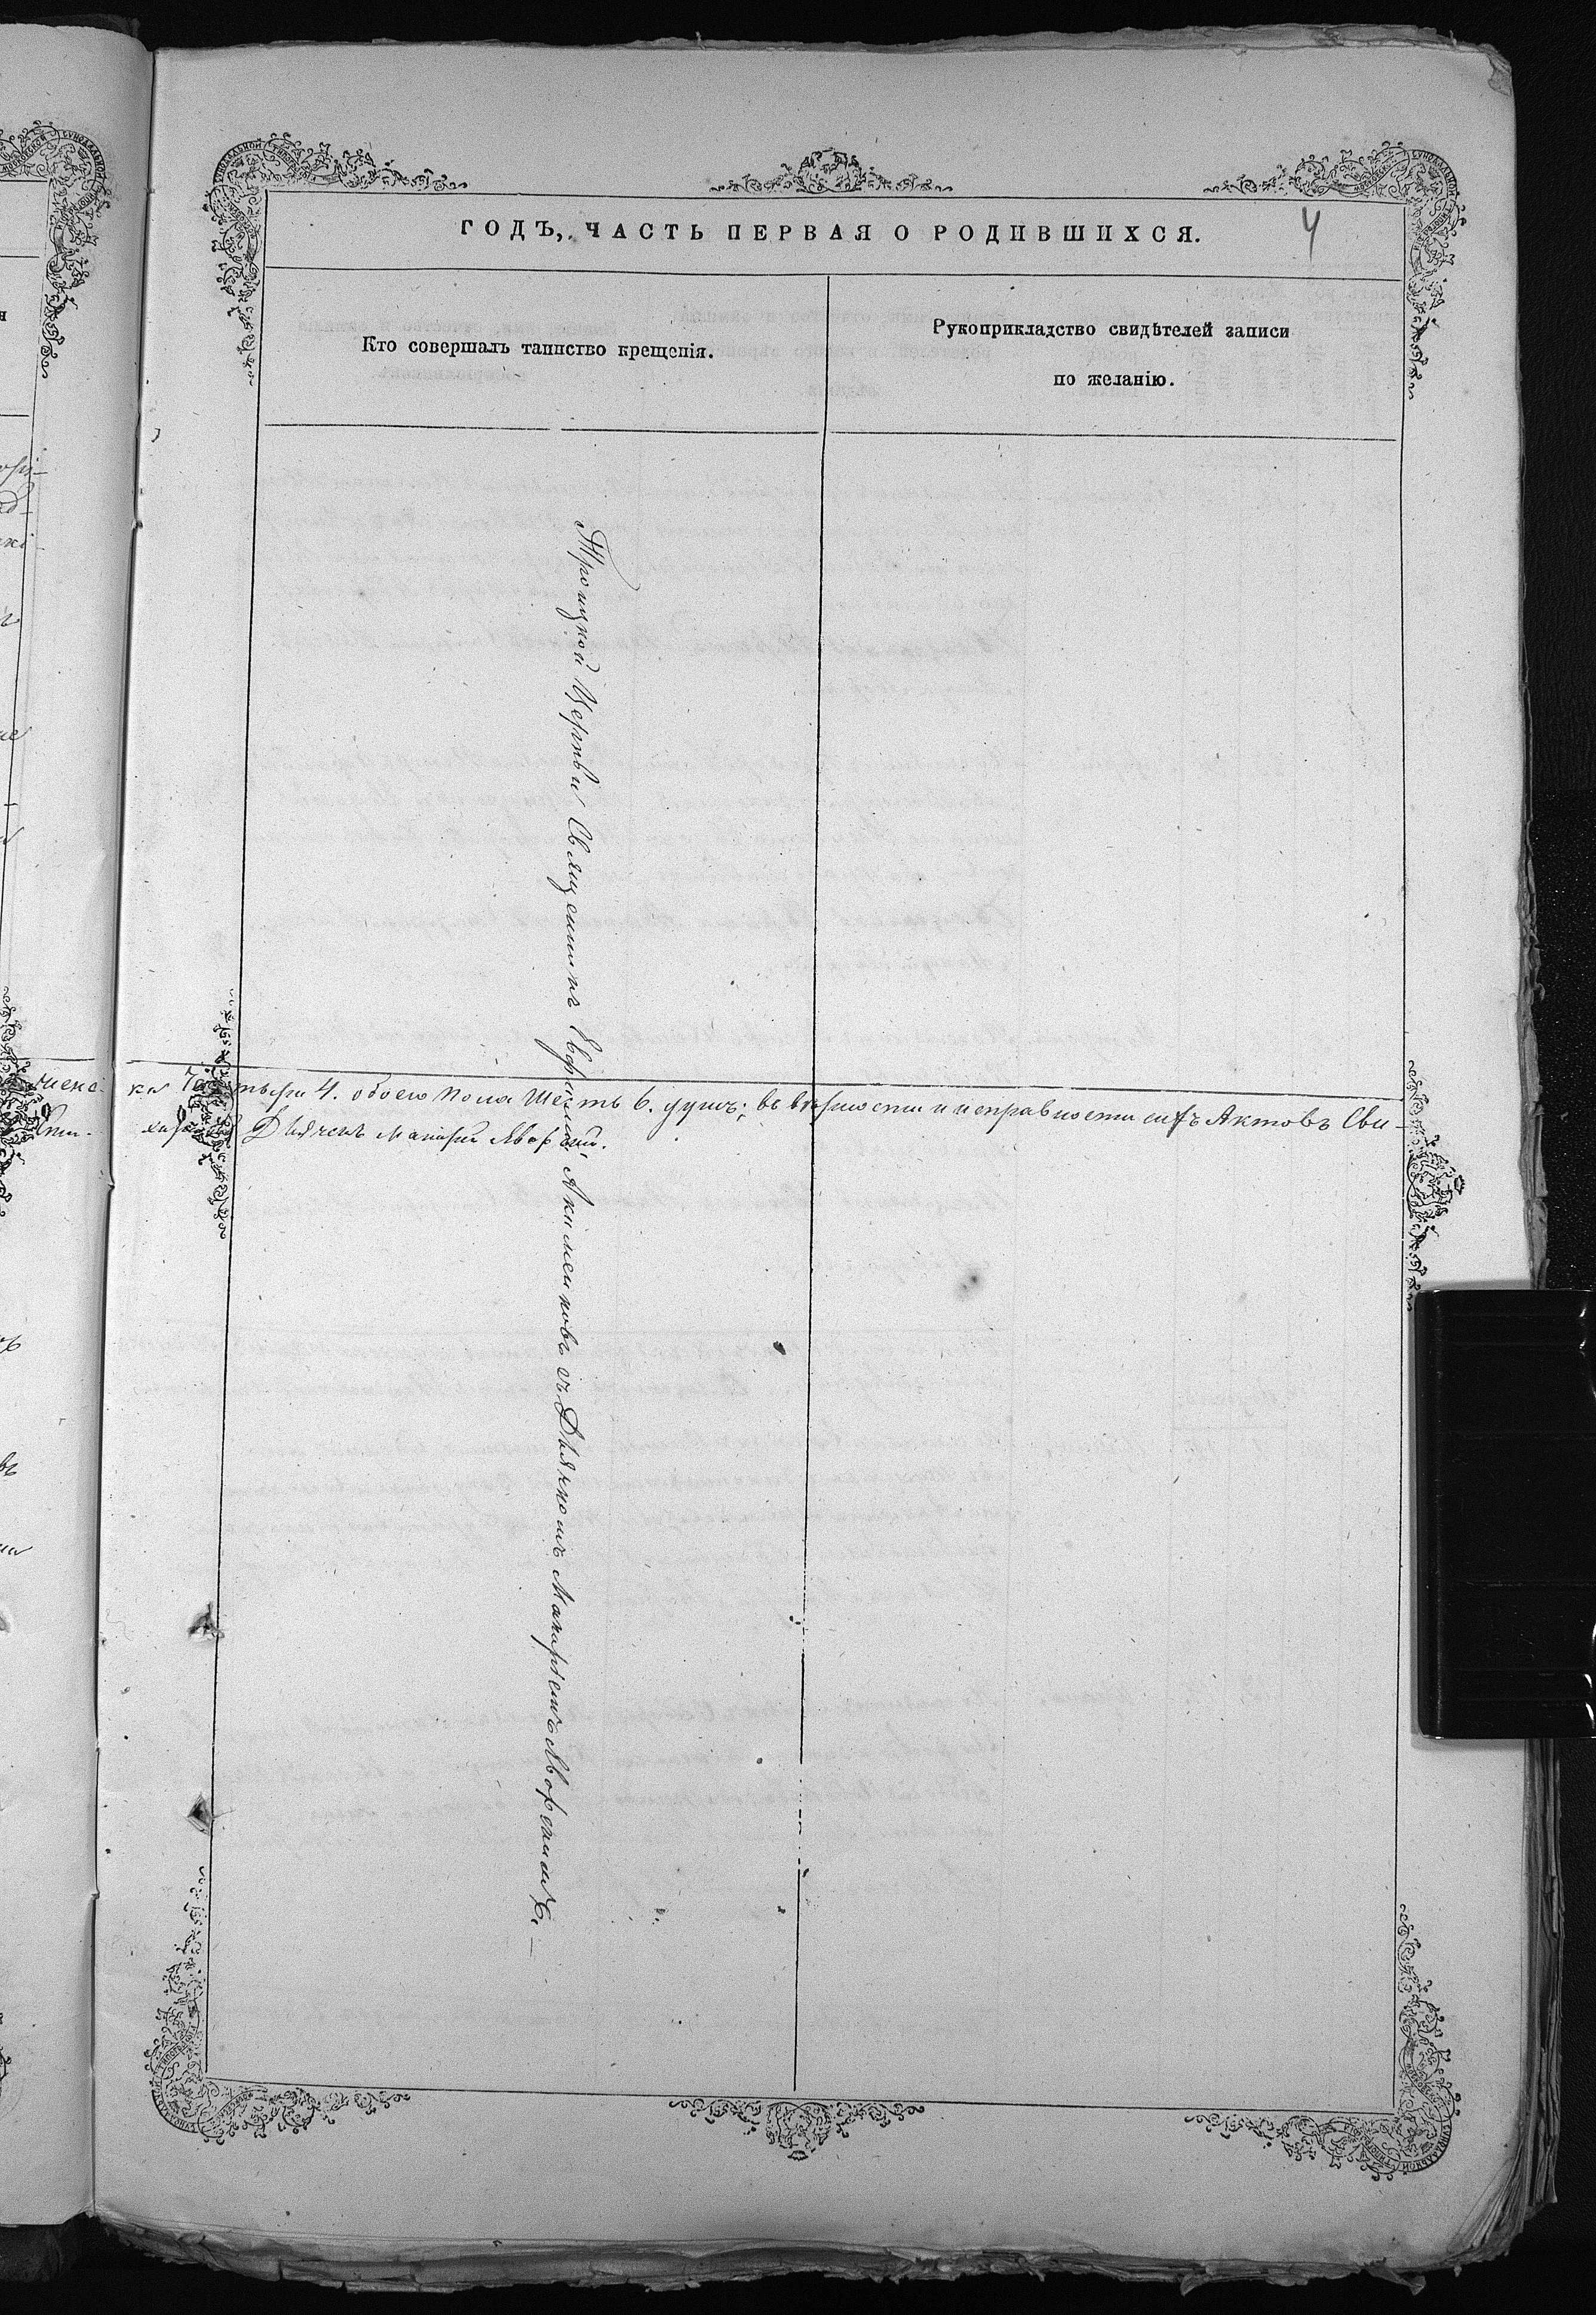 ГОДЪ, ЧАСТЬ ПЕРВАЯ О РОДИВШИХСЯ.
4
Кто совершалъ таинство крещенія.
Рукоприкладство свидѣтелей записи
по желанію.
Троицкой Церкви Священникъ Ефремъ Акименковъ съ Дьячкомъ Макаріемъ Яворскимъ.—
ка четыри 4. обоего пола шесть 6. душъ; въ вѣрности и исправности сихъ Актовъ Сви-
Дьячекъ Макарій Яворскій.